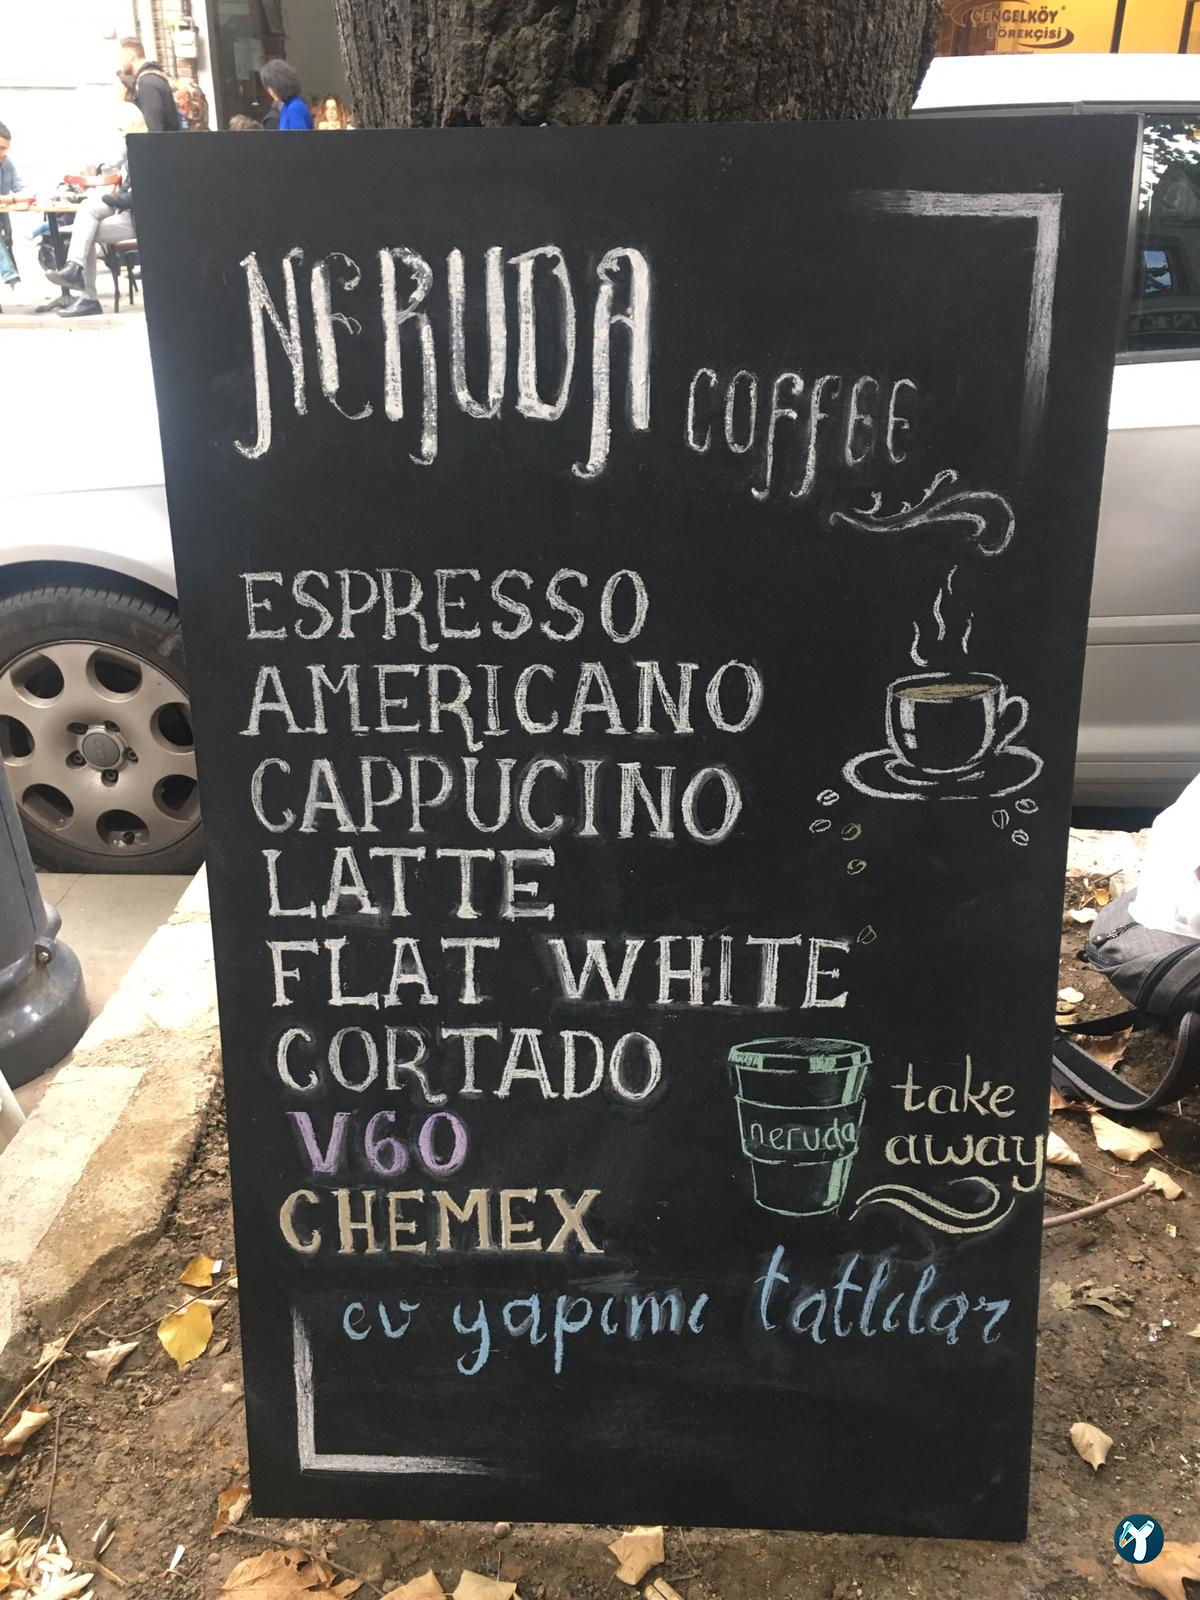 ÇENGELKÖY
BÖREKÇİSİ
NERUDA COFFEE
ESPRESSO
AMERICANO
CAPPUCINO
LATTE
FLAT WHITE
CORTADO
V60
CHEMEX
neruda
take
away
ev yapımı tatlılar